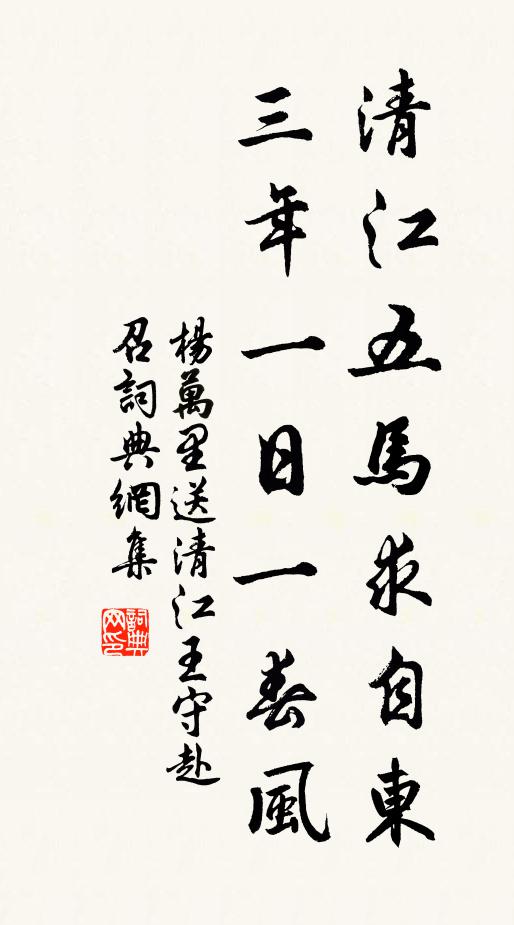 清江五馬來自東
三年一日一春風
楊萬里送清江王守赴
召詞典網集
詞典
网印